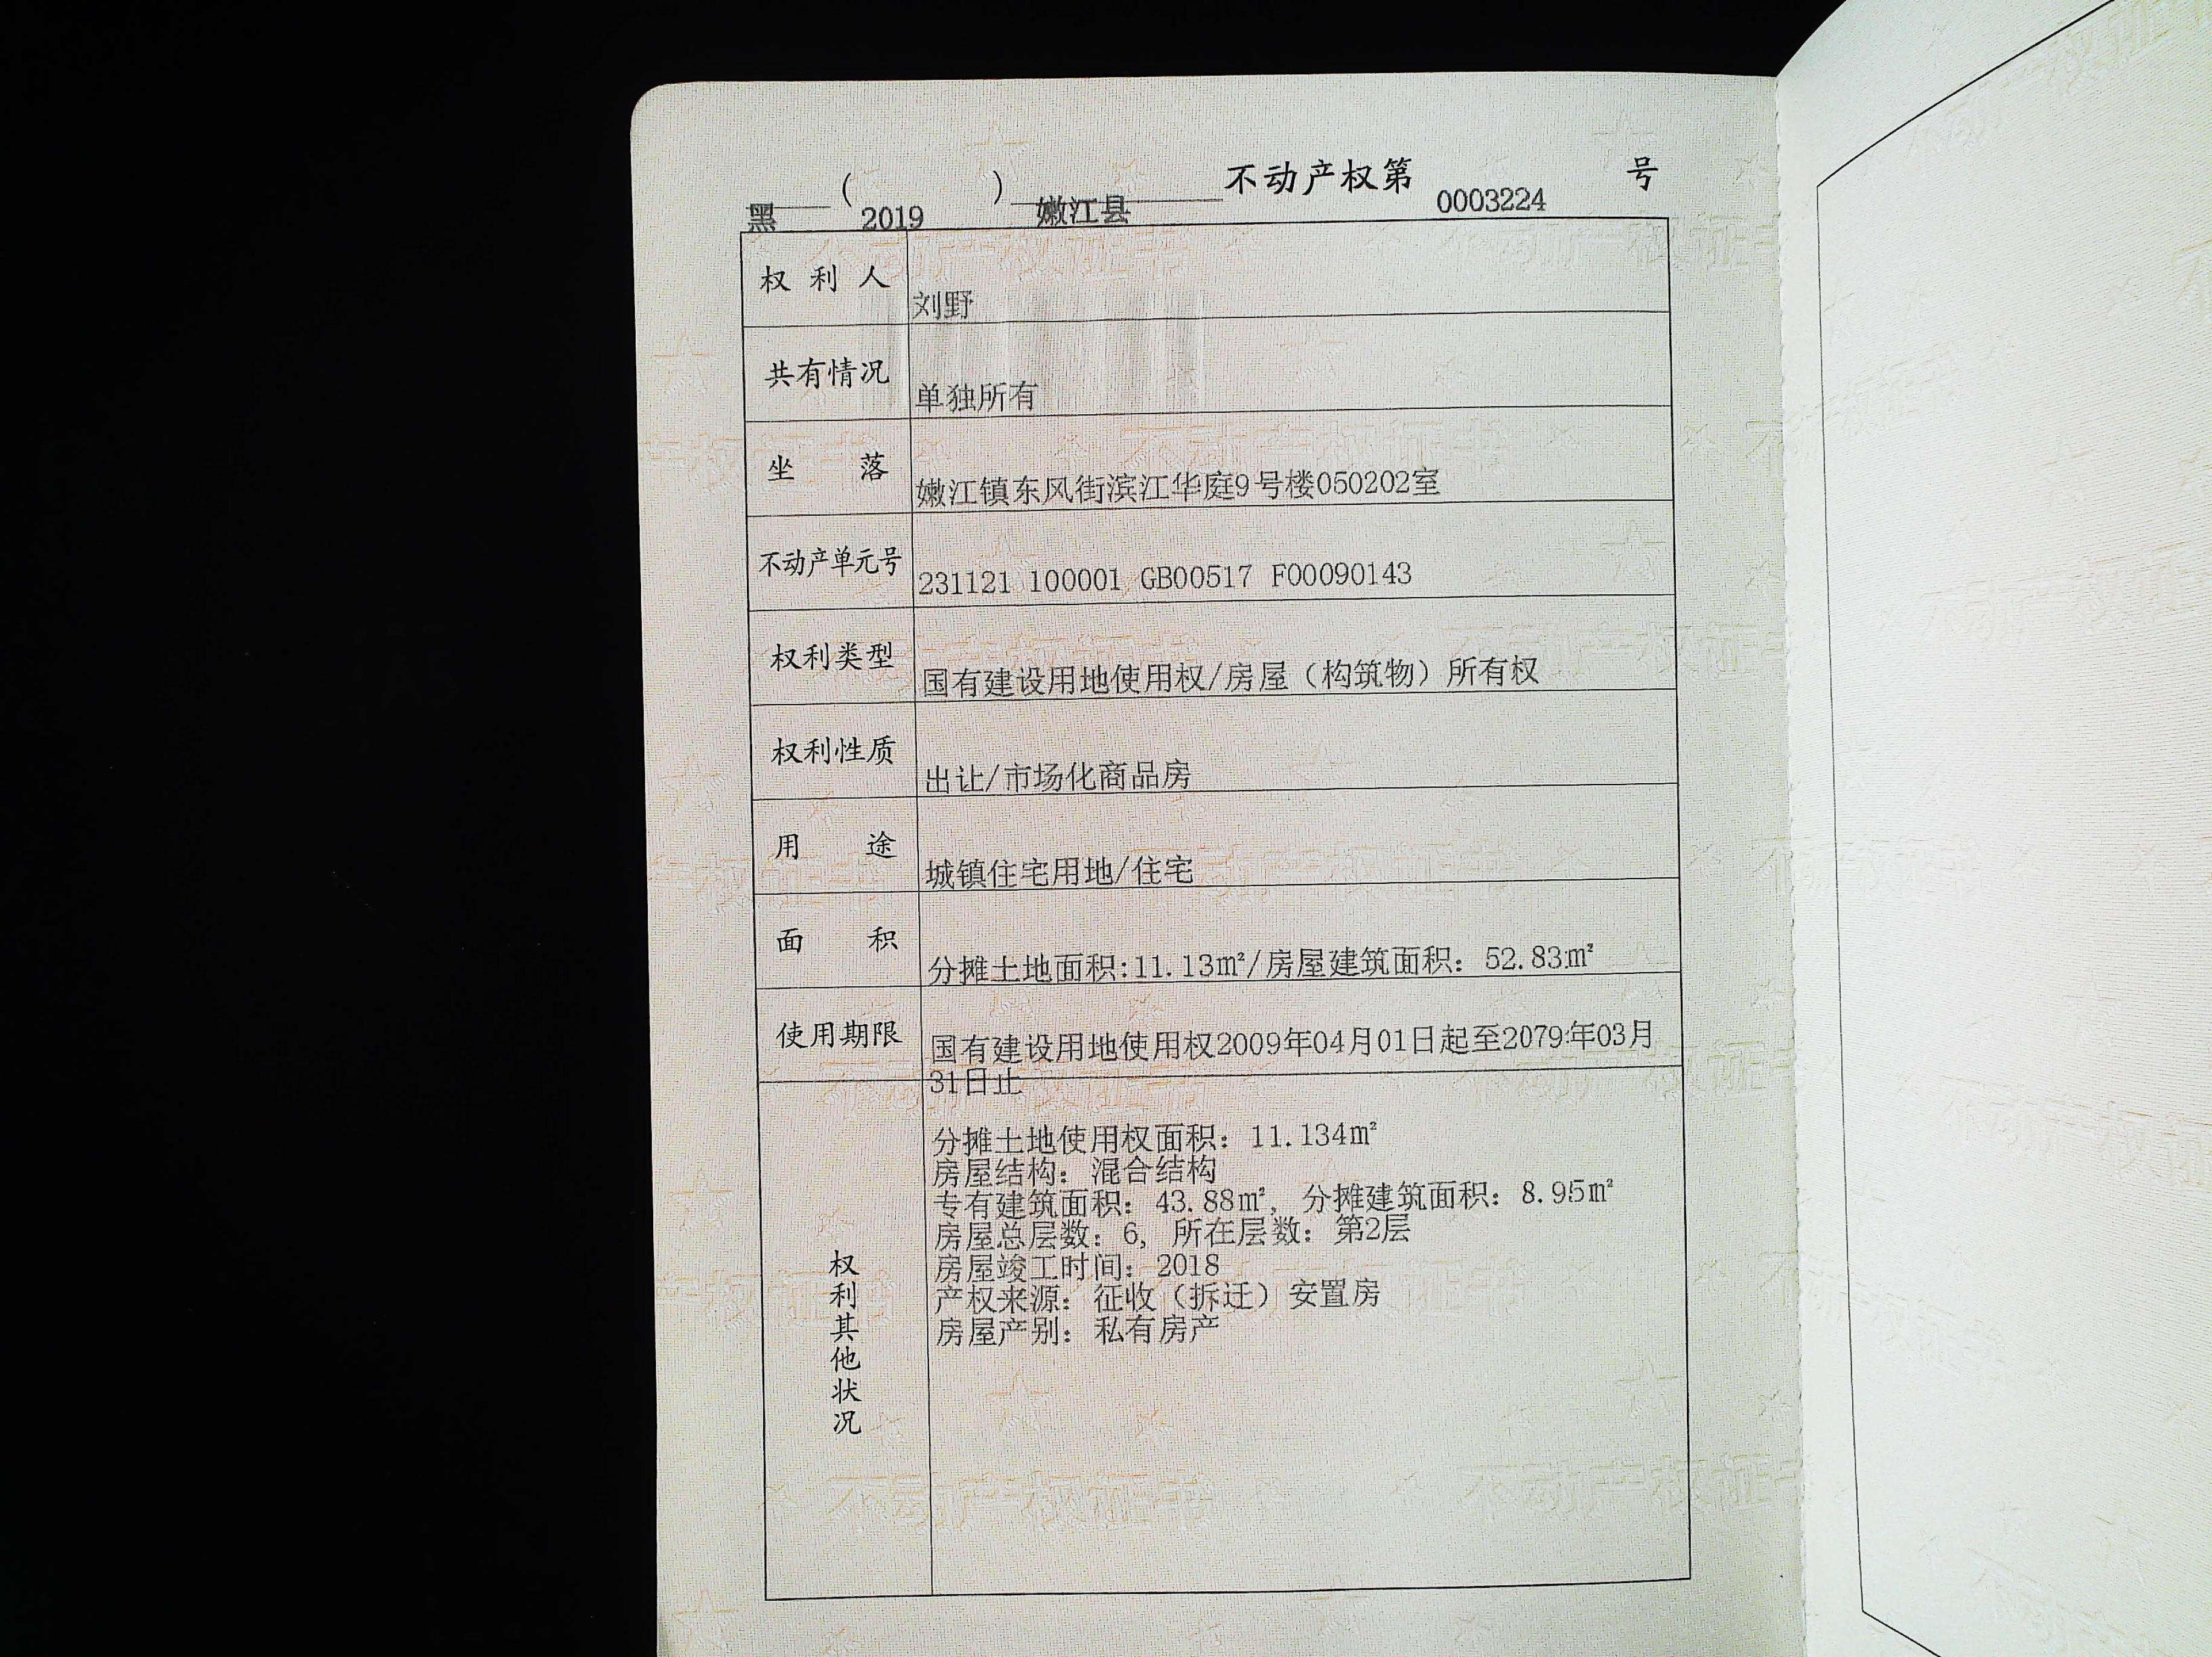 黑（2019）嫩江县不动产权第0003224号
权利人 刘野
共有情况 单独所有
坐落 嫩江镇东风街滨江华庭9号楼050202室
不动产单元号 231121 100001 GB00517 F00090143
权利类型 国有建设用地使用权/房屋（构筑物）所有权
权利性质 出让/市场化商品房
用途 城镇住宅用地/住宅
面积 分摊土地面积:11.13㎡/房屋建筑面积：52.83㎡
使用期限 国有建设用地使用权2009年04月01日起至2079年03月
31日止
权利其他状况
分摊土地使用权面积：11.134㎡
房屋结构：混合结构
专有建筑面积：43.88㎡，分摊建筑面积：8.95㎡
房屋总层数：6，所在层数：第2层
房屋竣工时间：2018
产权来源：征收（拆迁）安置房
房屋产别：私有房产